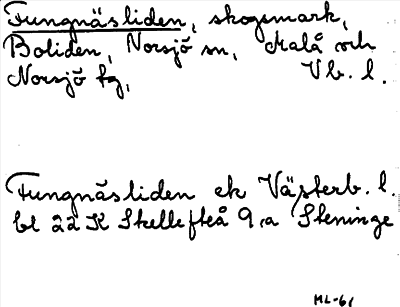 Tungnäsliden, skogsmark,
Boliden, Norsjö sn, Malå och
Norsjö tg, Vb. l.
Tungnäsliden ek Västerb. l.
bl 22 K Skellefteå 9,a Steninge
ML-61